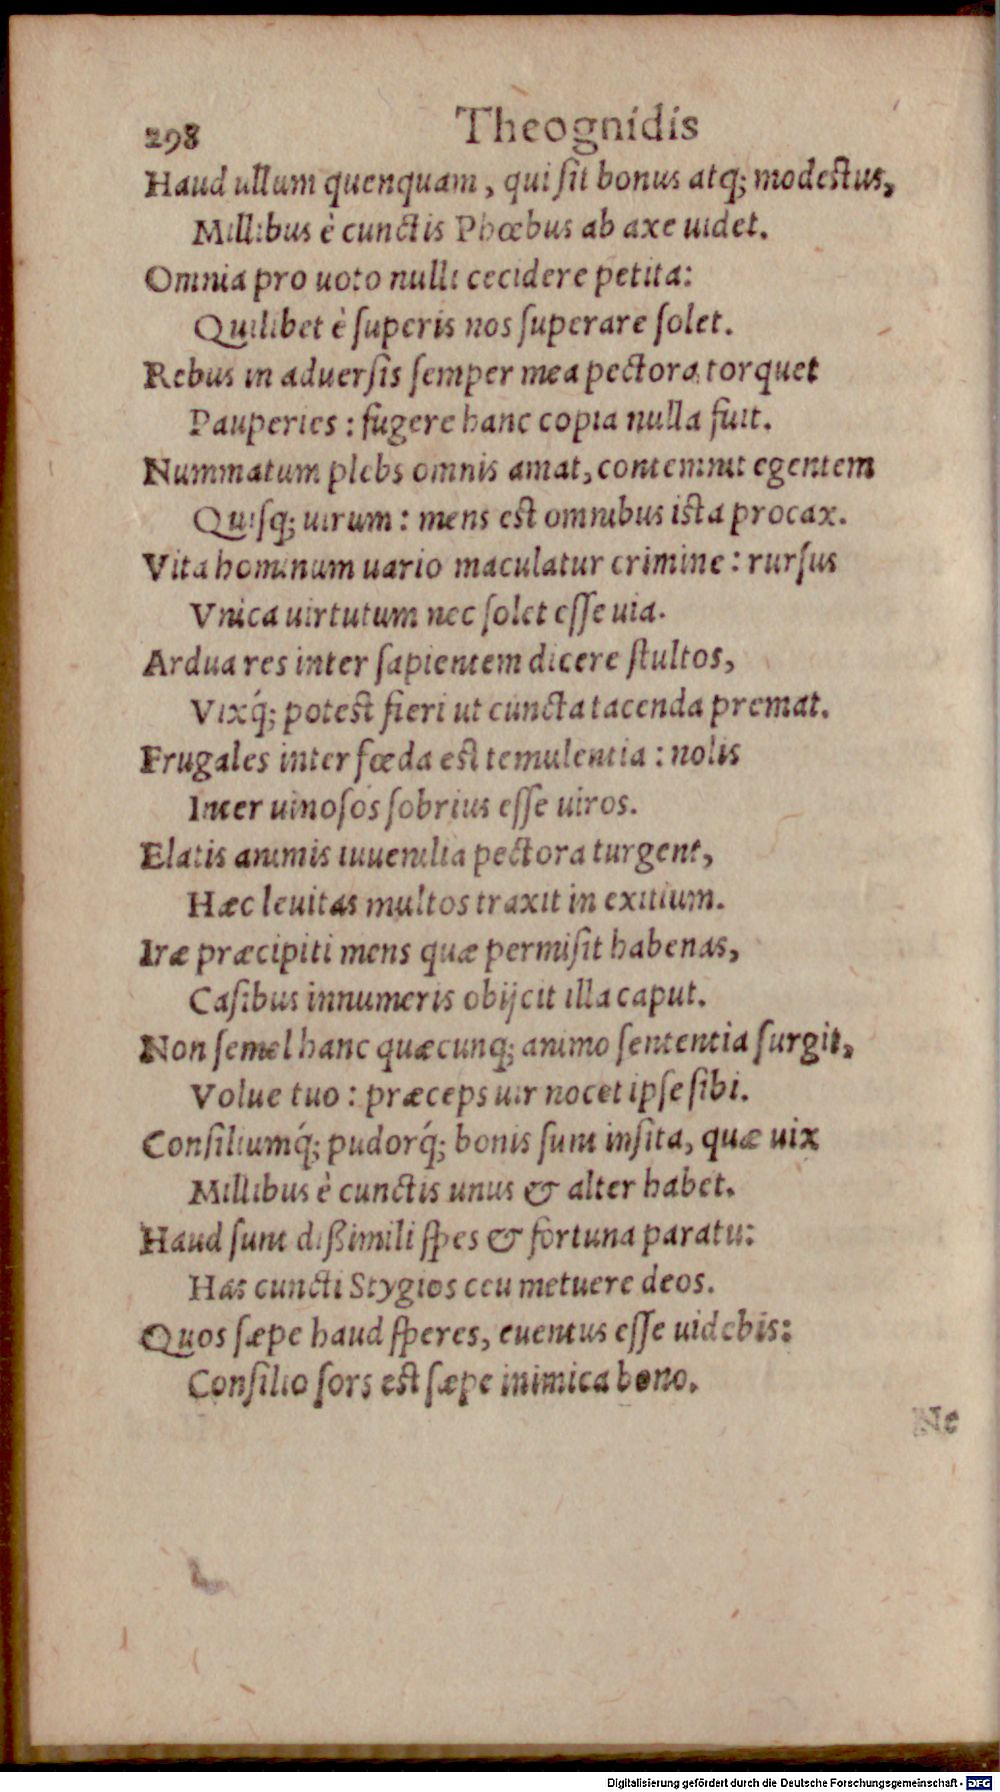 298 Theognidis
Haud ullum quenquam, qui ſit bonus atq; modestus,
Millibus è cunctis Phœbus ab axe uidet.
Omnia pro uoto nulli cecidere petita:
Quilibet è ſuperis nos ſuperare ſolet.
Rebus in aduerſis ſemper mea pectora torquet
Pauperies: fugere hanc copia nulla fuit.
Nummatum plebs omnis amat, contemnit egentem
Quiſq; uirum: mens est omnibus ista procax.
Vita hominum uario maculatur crimine: rurſus
Vnica uirtutum nec ſolet eſſe uia.
Ardua res inter ſapientem dicere ſtultos,
Vixq́; potest fieri ut cuncta tacenda premat.
Frugales inter fœda est temulentia: nolis
Inter uinoſos ſobrius eſſe uiros.
Elatis animis iuuenilia pectora turgent,
Hæc leuitas multos traxit in exitium.
Iræ præcipiti mens quæ permiſit habenas,
Caſibus innumeris obijcit illa caput.
Non ſemel hanc quæcunq; animo ſententia ſurgit,
Volue tuo: præceps uir nocet ipſe ſibi.
Conſiliumq́; pudorq́; bonis ſunt inſita, quæ uix
Millibus è cunctis unus & alter habet.
Haud ſunt dißimili ſpes & fortuna paratu:
Has cuncti Stygios ceu metuere deos.
Quos ſæpe haud ſperes, euentus eſſe uidebis:
Conſilio ſors est ſæpe inimica bono.
Ne
Digitalisierung gefördert durch die Deutsche Forschungsgemeinschaft - DFG